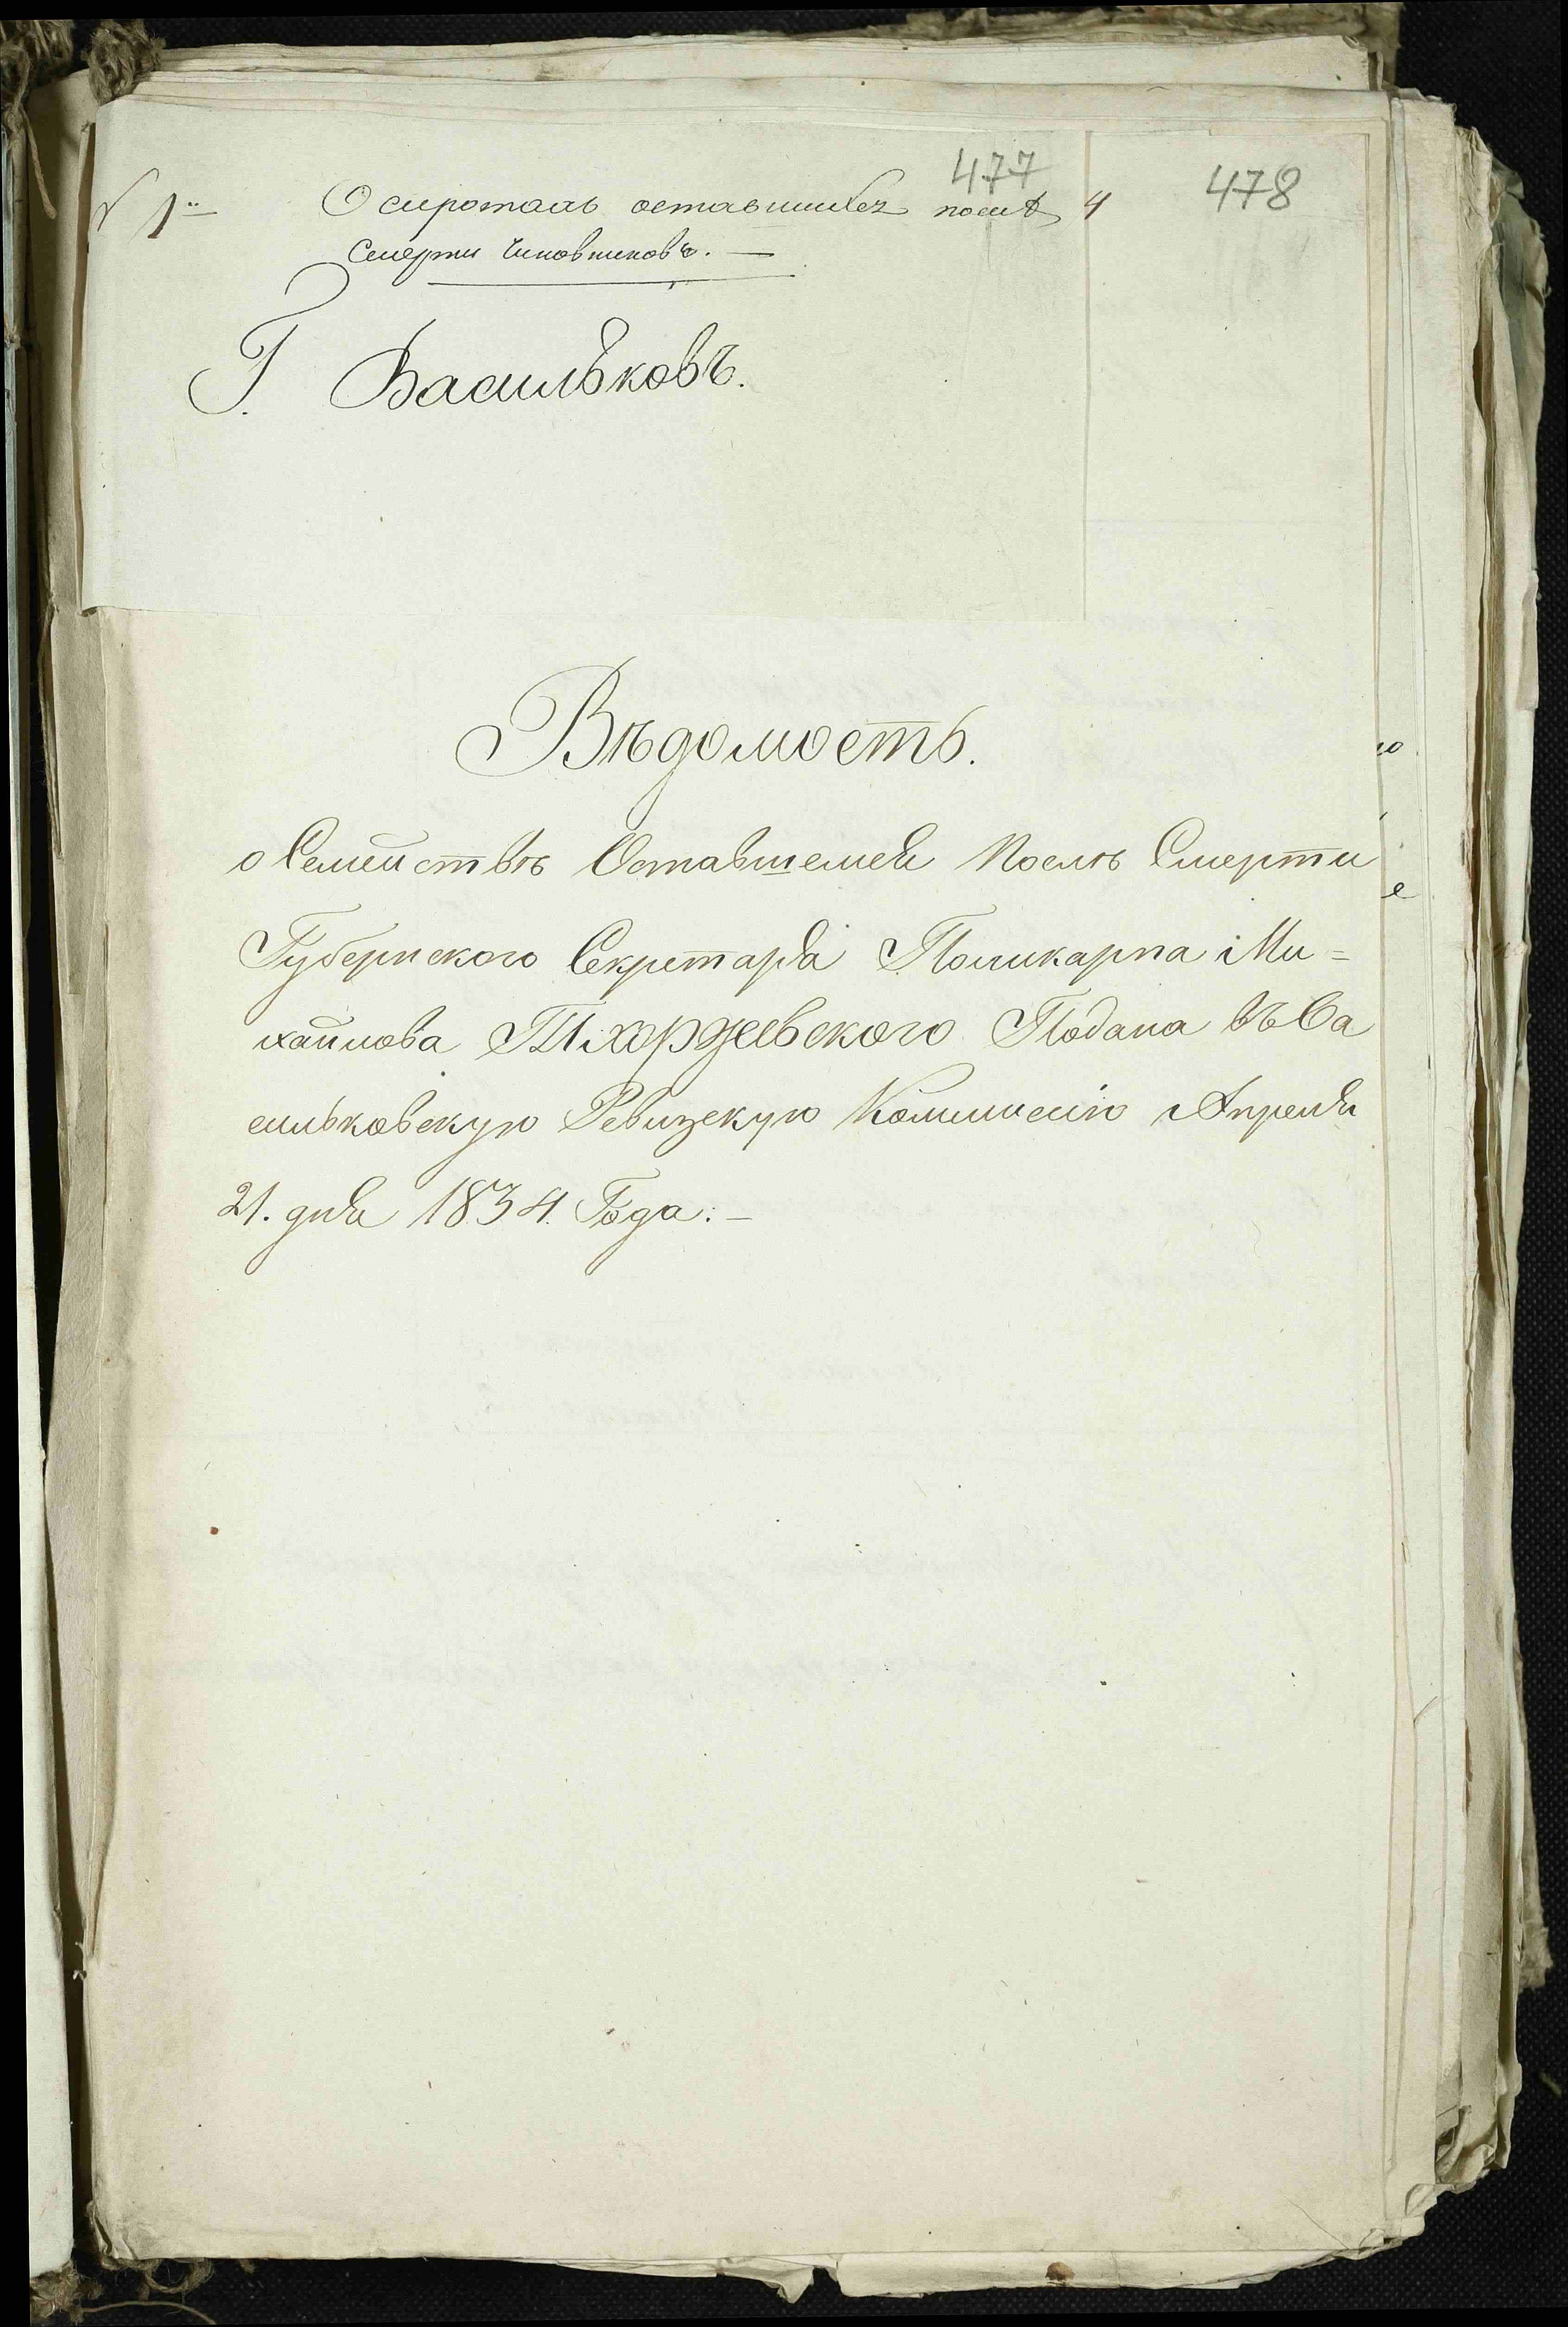 477
478
№ 1й О сиротахъ оставшихся послѣ 4
смерти Чиновниковъ. —
Г. Васильковъ.
Вѣдомость.
о Семействѣ Оставшемся Послѣ Смерти
Губернского Секретаря Поликарпа Ми=
хайлова Пхоржевского Подана въ Ва
сильковскую Ревизскую Коммисію Апреля
21. дня 1834. Года. —
ю
е